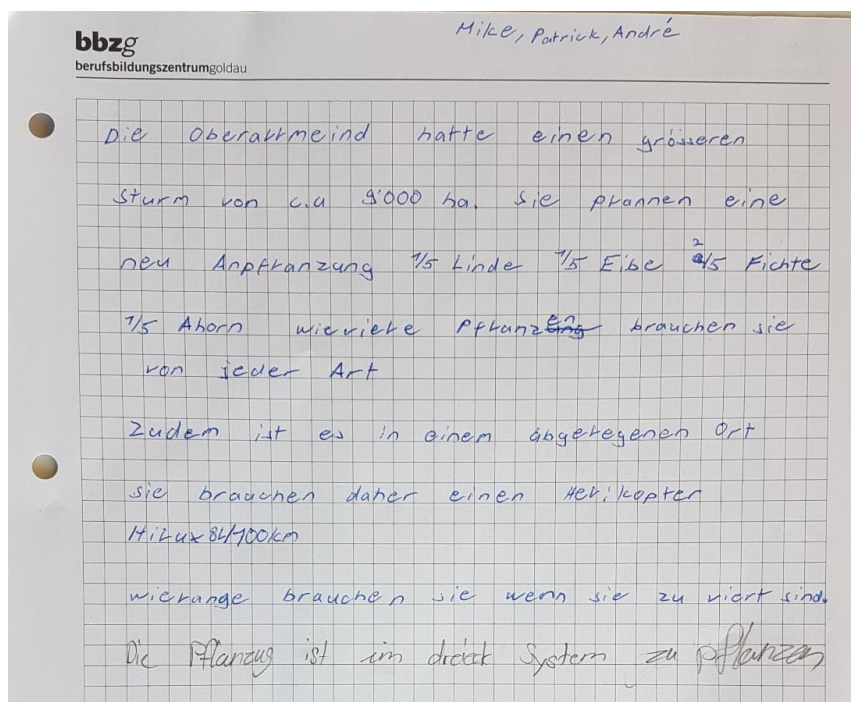 Mike, Patrick, André
bbzg
berufsbildungszentrumgoldau
Die Oberallmeind hatte einen grösseren
Sturm von c.a 9'000 ha. Sie plannen eine
neu Anpflanzung 1/5 Linde 1/5 Eibe 2/5 Fichte
1/5 Ahorn wieviele Pflanzen brauchen sie
von jeder Art
Zudem ist es in einem abgelegenen Ort
sie brauchen daher einen Helikopter
HiLux 8L/100km
wielange brauchen sie wenn sie zu viert sind.
Die Pflanzug ist im dreieck System zu pflanzen